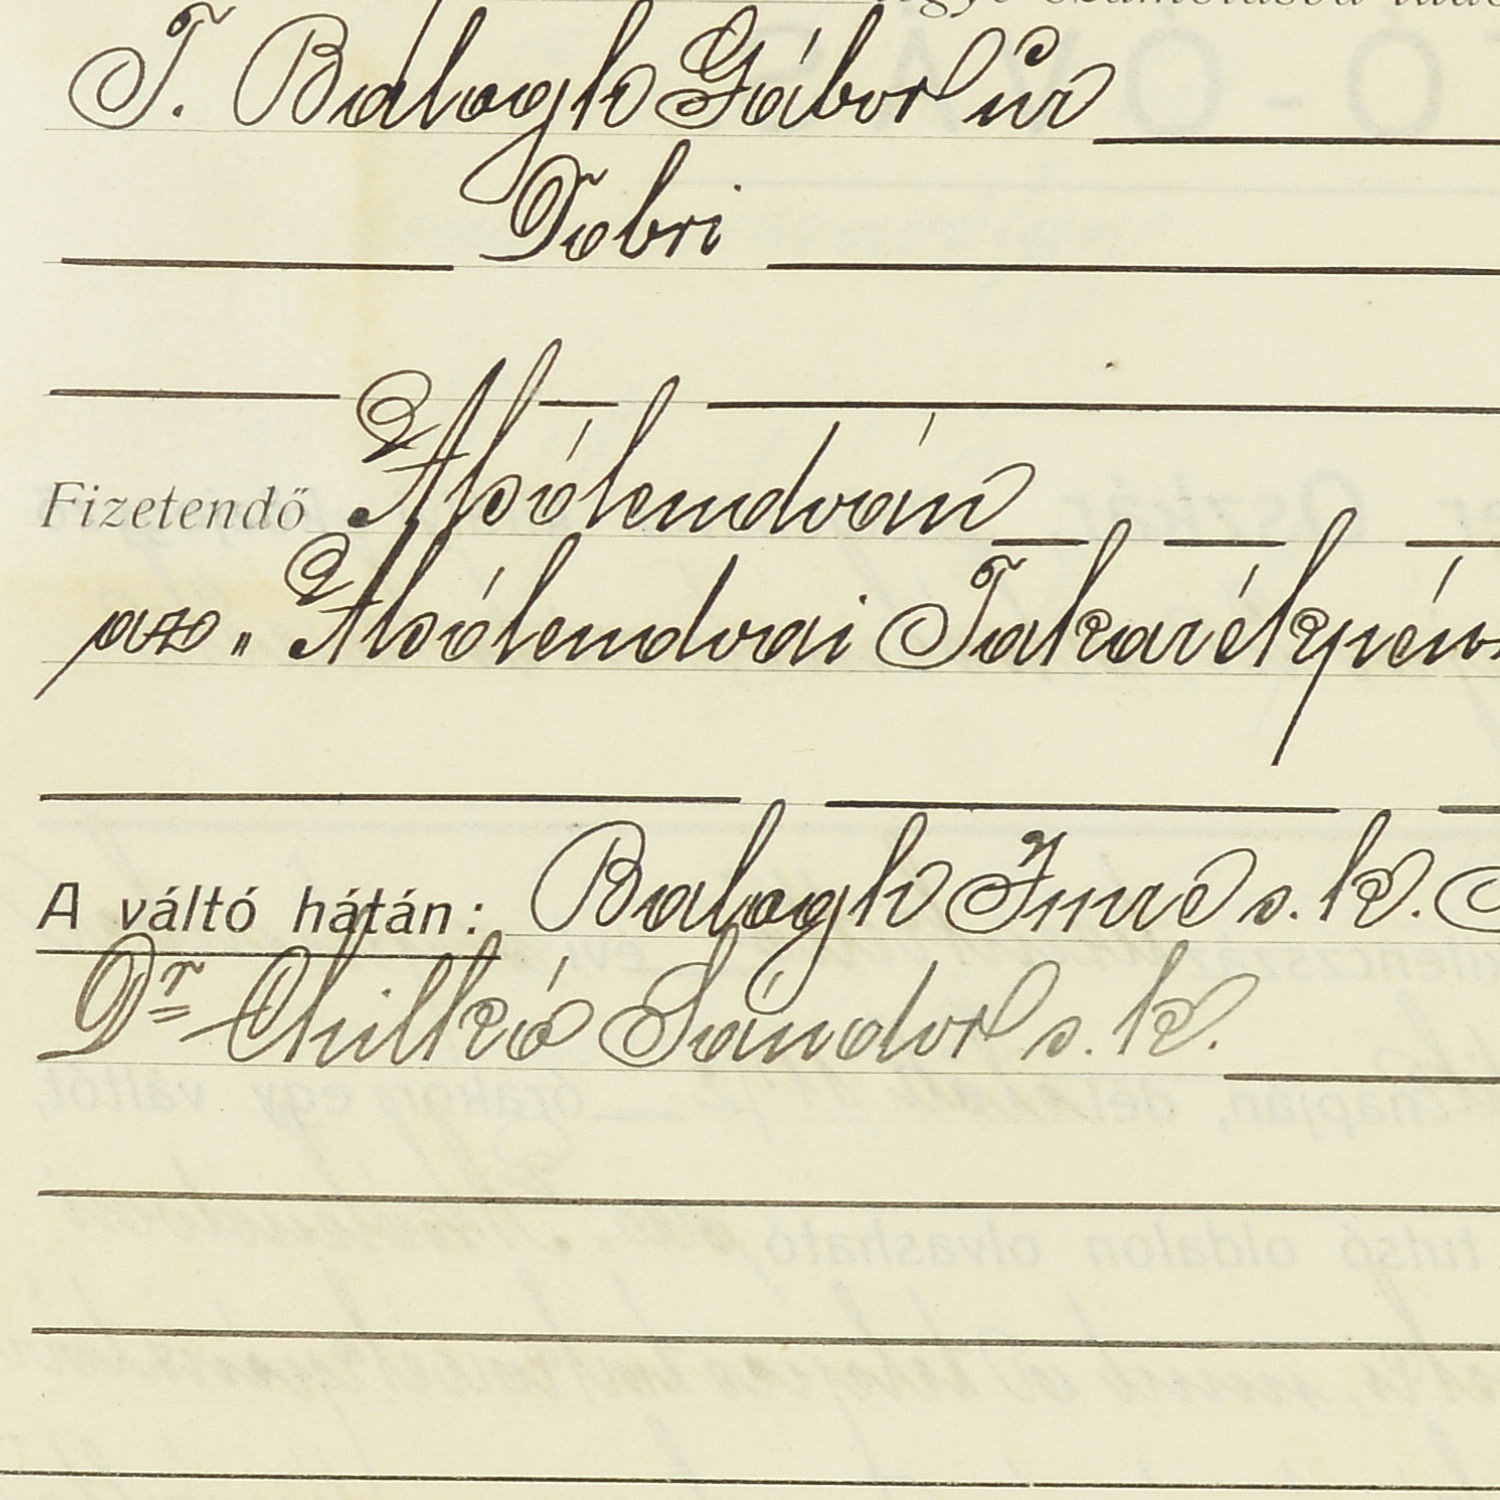 T. Balogh Gábor úr
Dobri
Fizetendő Alsólendván
az "Alsólendvai Takarékpénz
A váltó hátán: Balogh Imre s. k.
Dr Chilkó Sándor s. k.